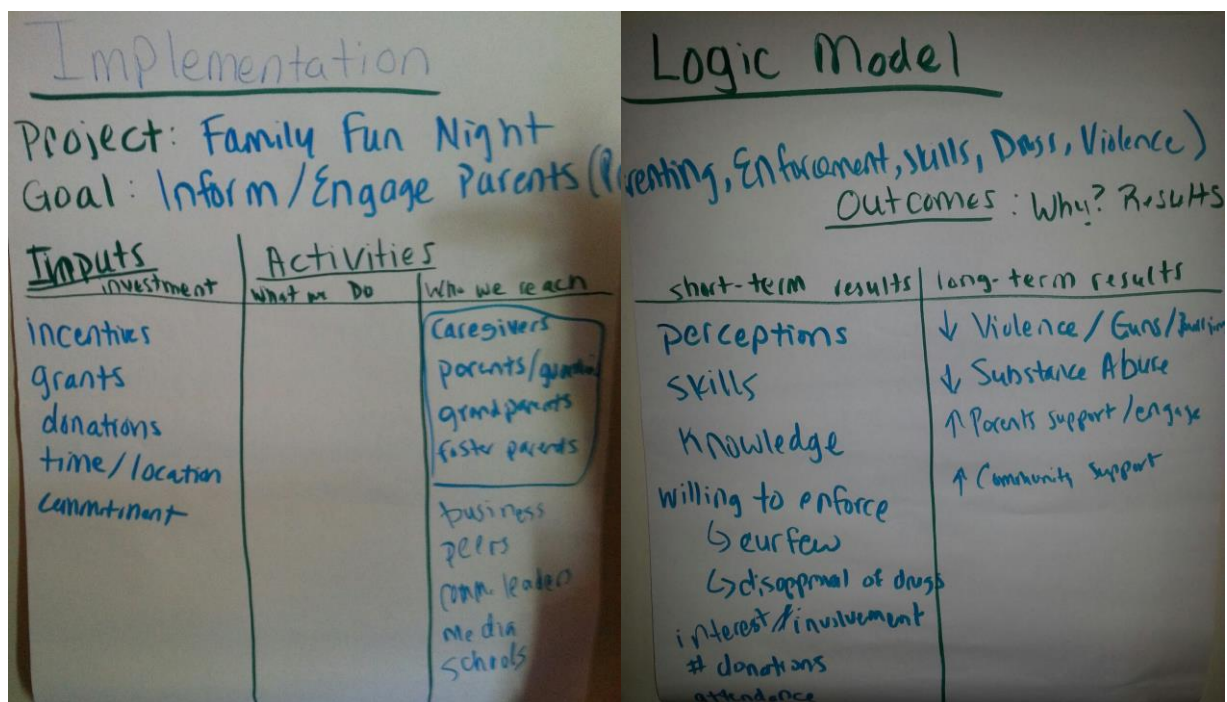 Implementation
Project: Family Fun Night
Goal: Inform/Engage Parents (Parenting, Enforcement, skills, Drugs, Violence)
Inputs
investment
incentives
grants
donations
time/location
commitment
Activities
What we Do
Who we reach
caregivers
parents/guardians
grandparents
foster parents
business
peers
comm. leaders
media
schools
Logic Model
Outcomes: Why? Results
short-term results
perceptions
skills
knowledge
willing to enforce
↳ curfew
↳ disapproval of drugs
interest/involvement
# donations
attendance
long-term results
↓ Violence/Guns/
↓ Substance Abuse
↑ Parents support/engage
↑ Community support